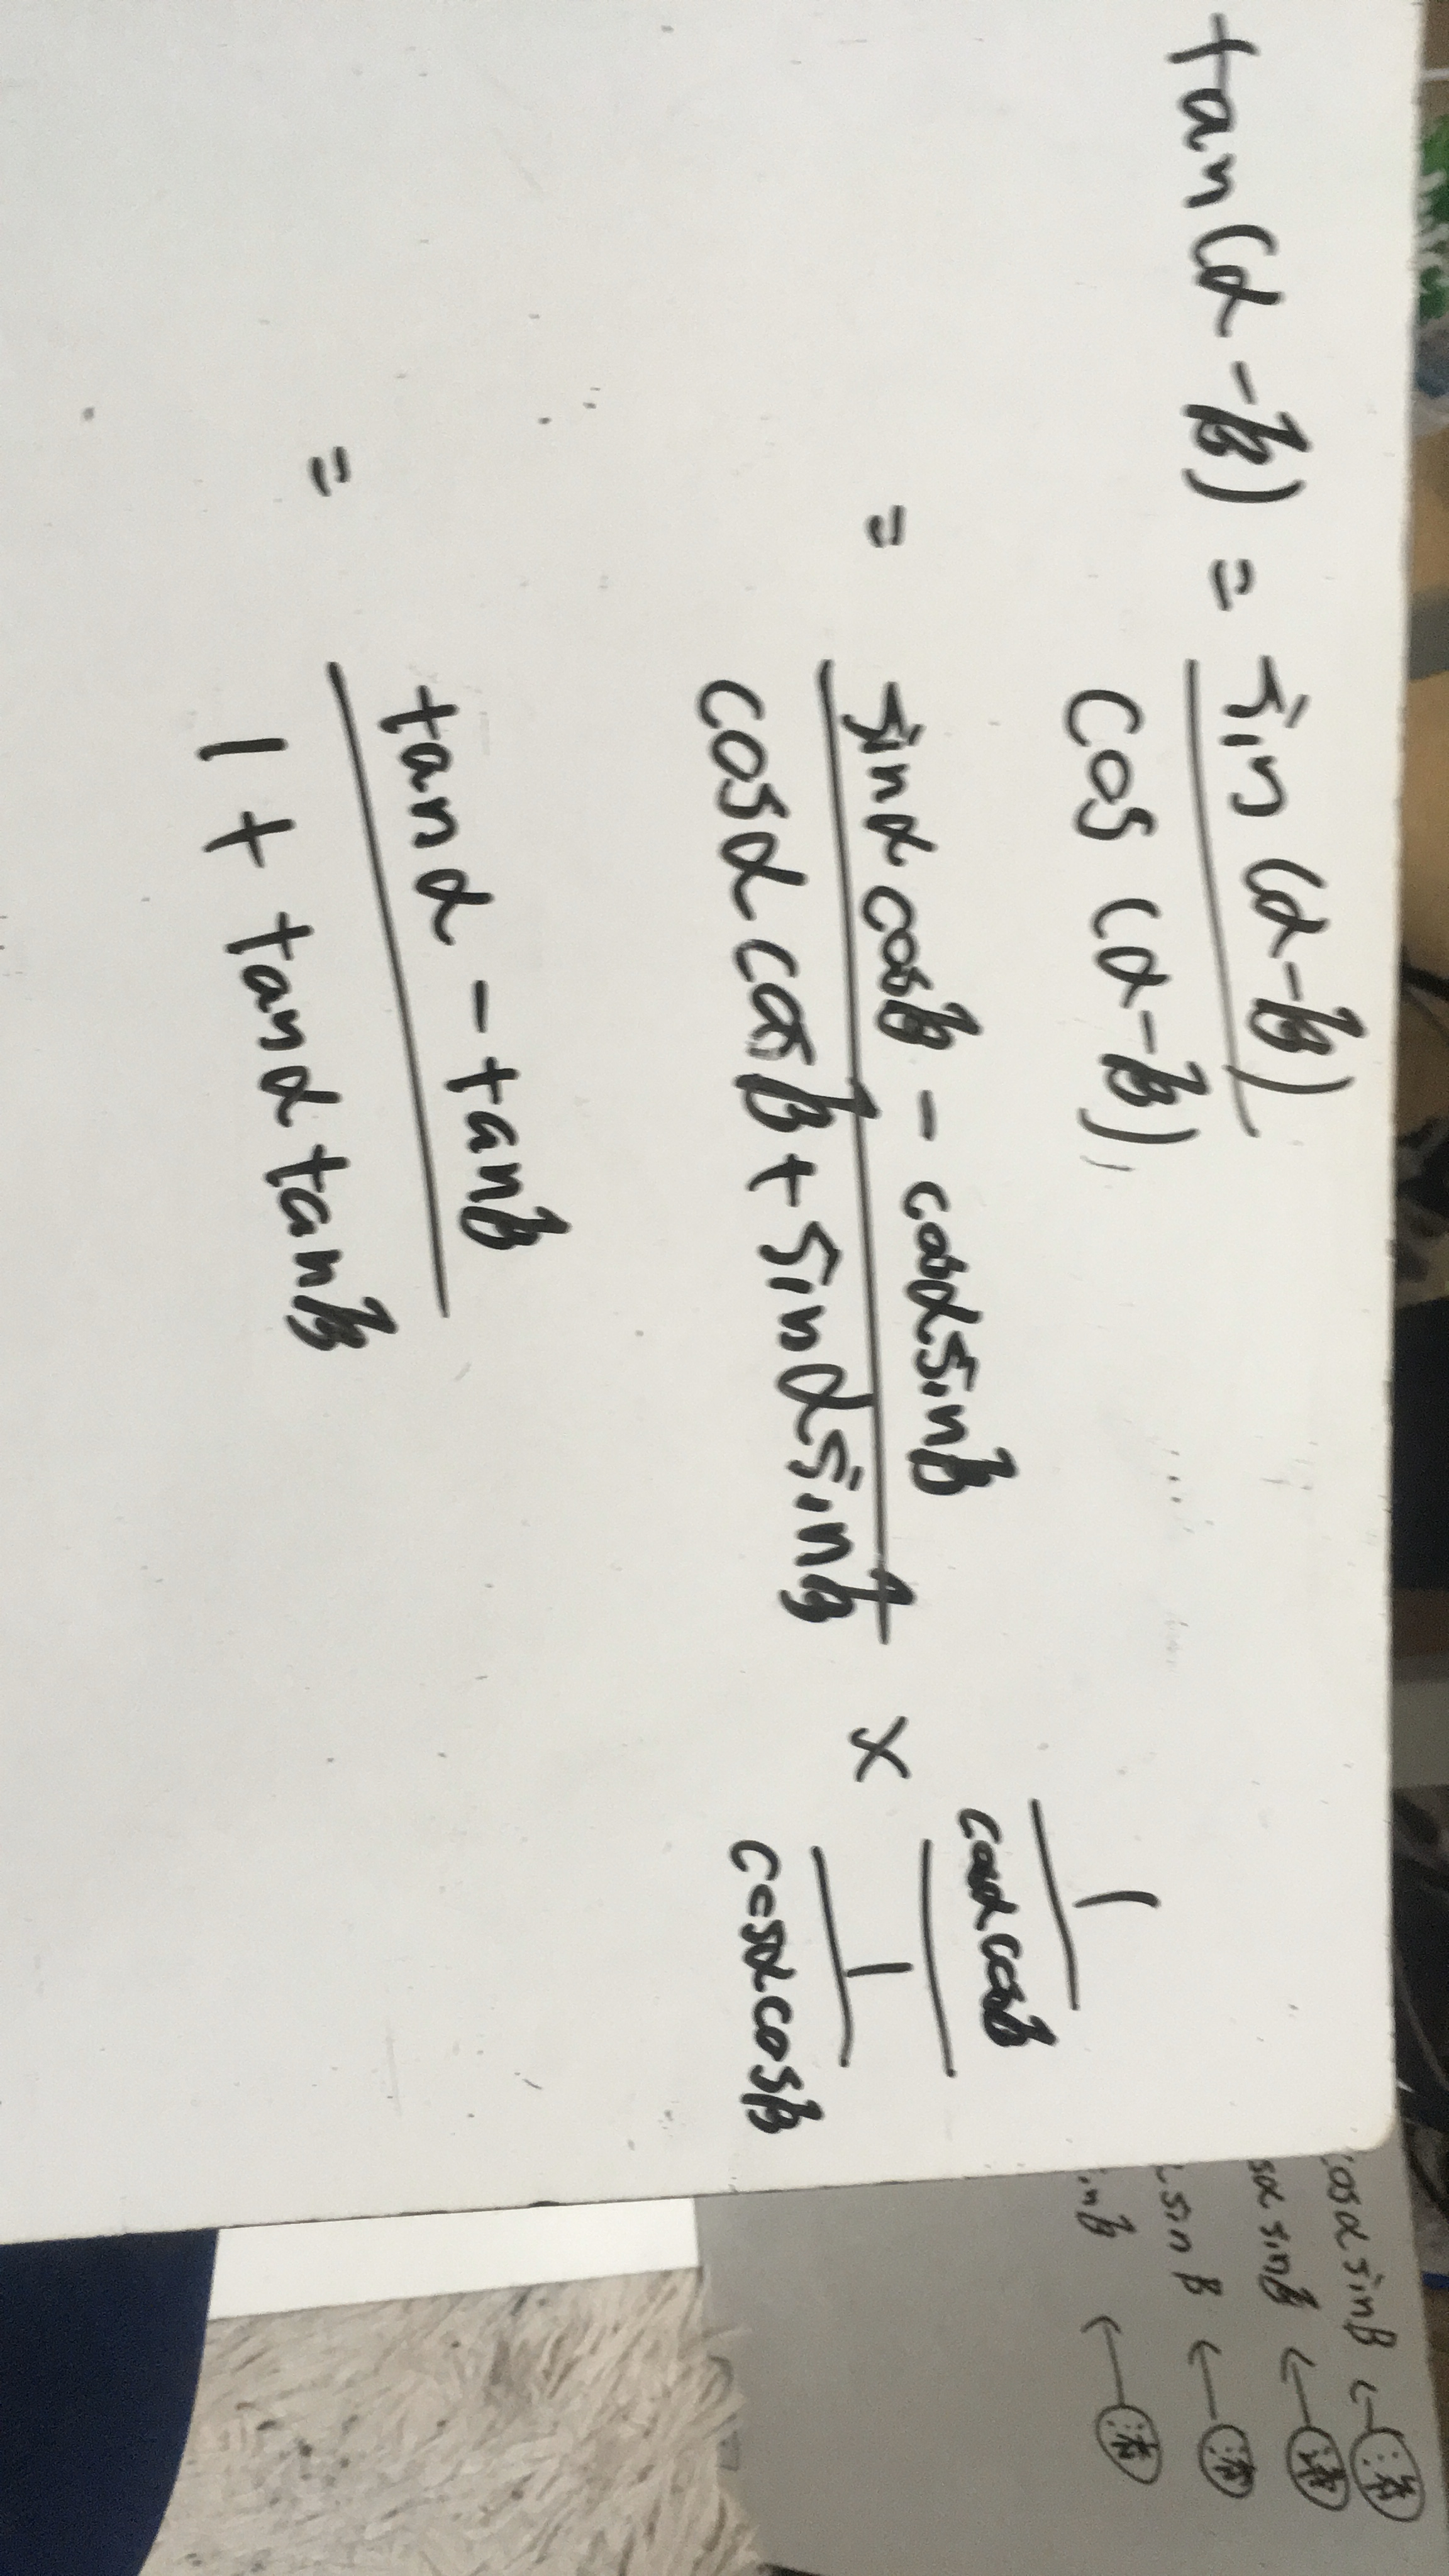 tan(α-β) = sin(α-β)
cos(α-β)
= sinα cosβ - cosα sinβ
cosα cosβ + sinα sinβ
×
1
cosα cosβ
1
cosα cosβ
= tanα - tanβ
1 + tanα tanβ
cosα sinβ ←
sα sinβ ←
sinβ ←
inβ ←